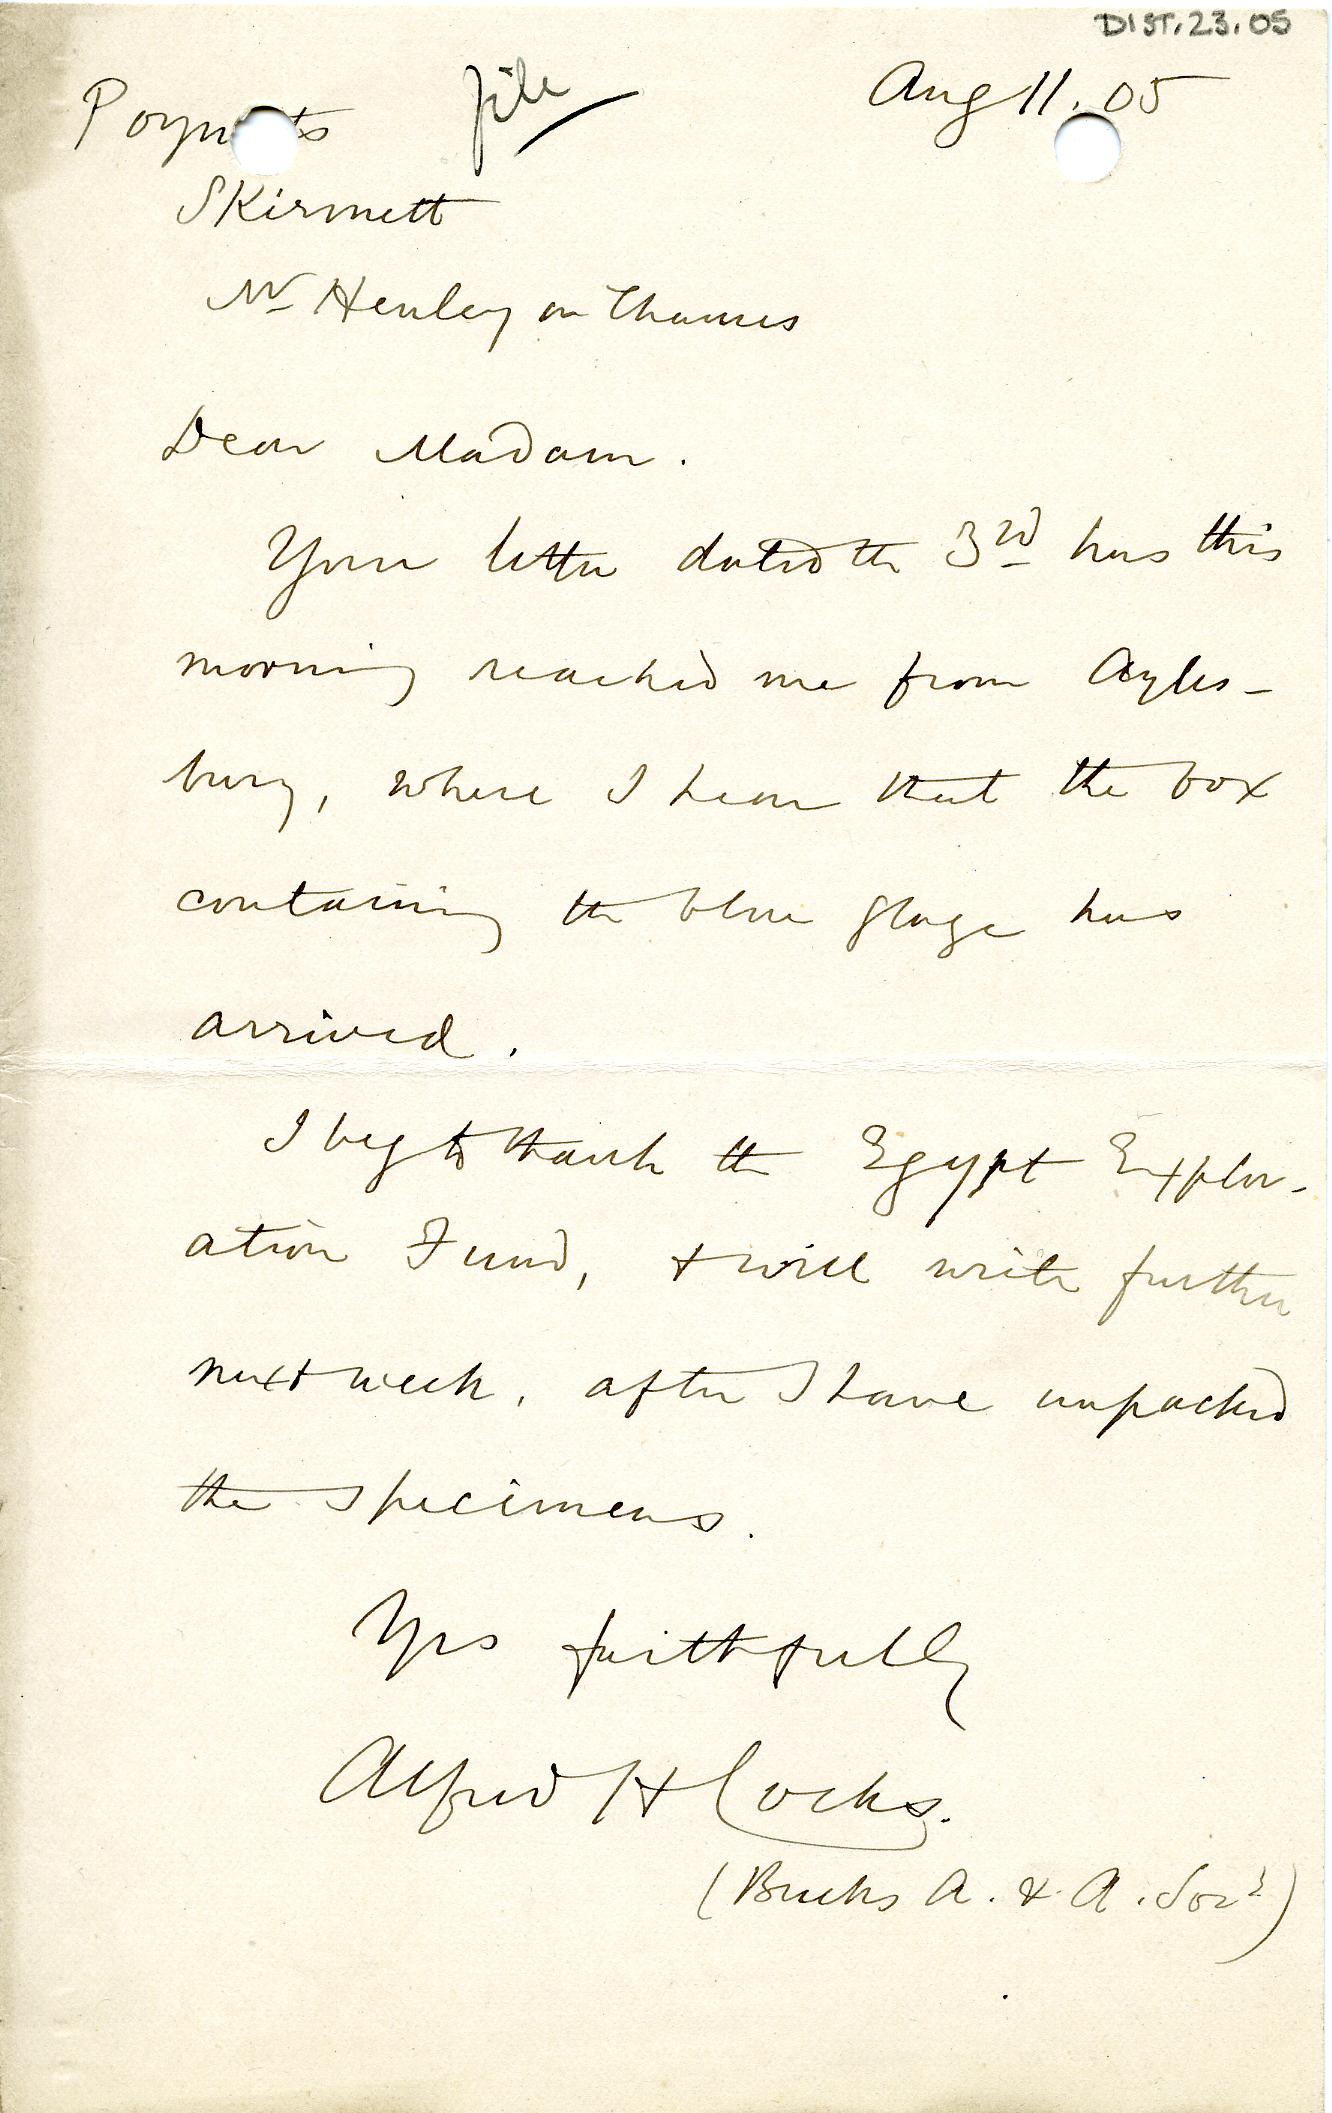 DIST.23.05
file
Aug 11. 05
Poyn ts
Skirmett
Nr Henley on Thames
Dear Madam.
Your letter dated the 3rd has this
morning reached me from Ayles-
bury, where I hear that the box
containing the blue glaze has
arrived.
I beg to thank the Egypt Explor-
ation Fund, & will write further
next week, after I have unpacked
the specimens.
Yrs faithfully
Alfred H Cocks.
(Bucks A. & A. Socy)